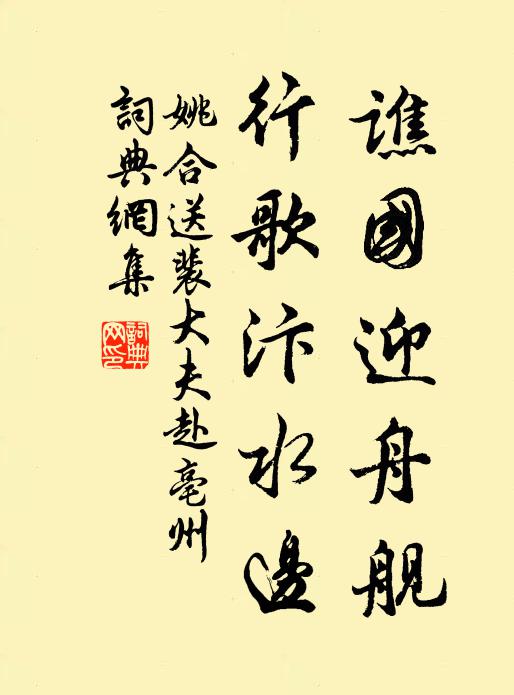 譙國迎舟舰
行歌汴水邊
姚合送裴大夫赴亳州
詞典網集
詞典网印